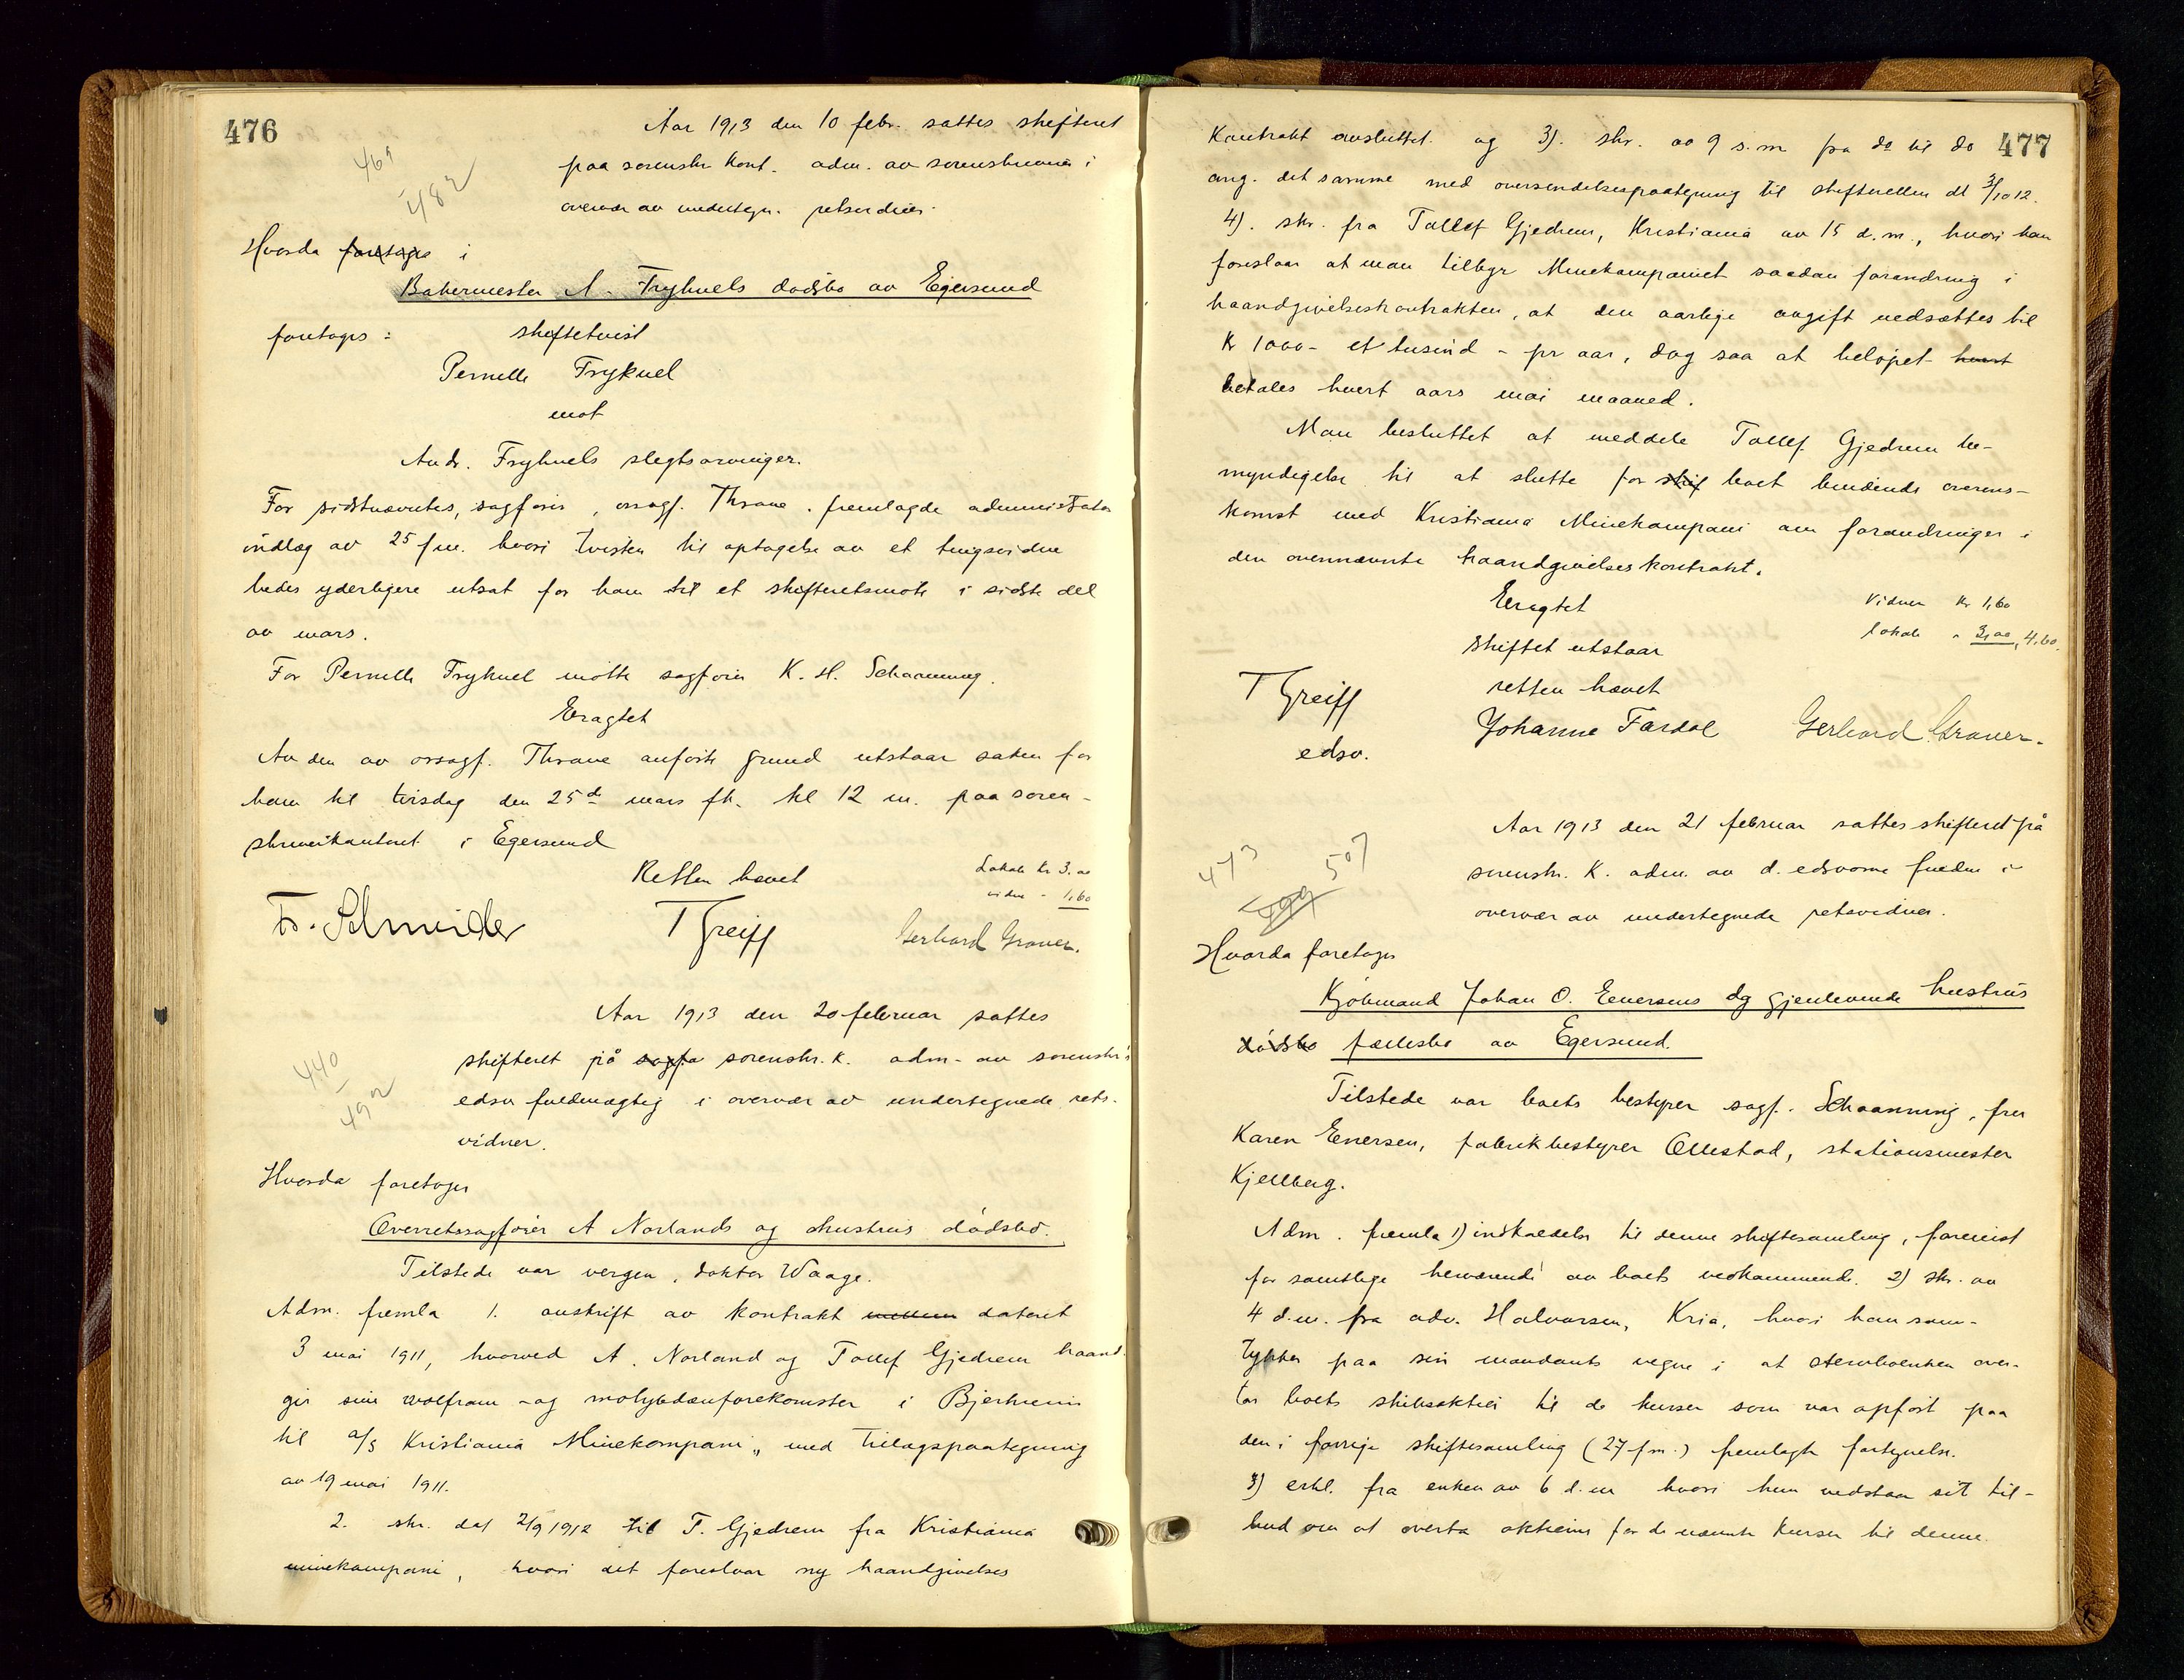 476
Aar 1913 den 10 febr. sattes skifteret
469
482
paa sorenskr kont. adm. av sorenskriveren i
overvær av undertegn. retsvidner.
Hvorda foretages i
Bakermester A. Frykvels dødsbo av Egersund
foretages: skiftetvist
Pernelle Frykvel
mot
Andr. Frykvels slegtsarvinger.
For sidstnævntes, sagfører, orsagf. Thrane. fremlagde administrator
indlæg av 25 f.m. hvori tvisten til optagelse av et tingsvidne
bedes yderligere utsat for ham til et skifteretsmøte i sidste del
av mars.
For Pernelle Frykvel møtte sagfører K. H. Schaanning.
Eragtet
Av den av orsagf. Thrane anførte grund utstaar saken for
ham til tirsdag den 25de mars fk. kl 12 m. paa soren-
skriverkontoret i Egersund
Retten hævet
Lokale kr 3.00
vidne - 1,60
Fr. Schneider T Greiff Gerhard Graver.
Aar 1913 den 20 februar sattes
440
492
skifteret på sagfø sorenskr. k. adm. av sorenskr's
edsv fuldmægtig i overvær av undertegnede rets-
vidner.
Hvorda foretages
Overretssagfører A Norlands og hustrus dødsbo.
Tilstede var vergen, doktor Waage.
Adm. fremla 1. avskrift av kontrakt mellem dateret
3 mai 1911, hvorved A. Norland og Tollef Gjedrem haand-
gir sine wolfram - og molybdænforekomster i Bjerkreim
til a/s Kristiania Minekompani, med tillægspaategning
av 19 mai 1911.
2. skr. dat 2/9 1912 til T. Gjedrem fra Kristiania
minekompani, hvori det foreslaar ny haandgivelses
477
kontrakt avsluttet. og 3). skr. av 9 s.m fra do til do
ang. det samme med oversendelsespaategning til skifteretten dt 3/10 12.
4). skr. fra Tollef Gjedrem, Kristiania av 15 d.m., hvori han
foreslaar at man tilbyr Minekompaniet saadan forandring i
haandgivelseskontrakten, at den aarlige avgift nedsættes til
kr 1000- et tusind - pr aar, dog saa at beløpet hvert
betales hvert aars mai maaned.
Man besluttet at meddele Tollef Gjedrem be-
myndigelse til at slutte for skif boet bindende overens-
komst med Kristiania Minekompani om forandringer i
den ovennævnte haandgivelseskontrakt.
Eragtet
Vidner kr 1,60
skiftet utstaar
lokale " 3,00, 4,60.
retten hævet
T Greiff
edsv.
Johanne Fardal Gerhard Graver.
Aar 1913 den 21 februar sattes skifteret på
473
507
499
sorenskr. K. adm. av d. edsvorne fuldm i
overvær av undertegnede retsvidner.
Hvorda foretages
Kjøbmand Johan O. Enersens og gjenlevende hustrus
dødsbo fællesbo av Egersund.
Tilstede var boets bestyrer sagf. Schaanning, fru
Karen Enersen, fabrikbestyrer Ollestad, stationsmester
Kjellberg.
Adm. fremla 1) indkaldelse til denne skiftesamling, forevist
for samtlige herværende av boets vedkommende. 2) skr. av
4 d.m. fra adv. Halvorsen, Kria, hvori han sam-
tykker paa sin mandants vegne i at sterboenken over-
tar boets skibsaktier til de kurser som var opført paa
den i forrige skiftesamling (27 f.m.) fremlagte fortegnelse.
3) erkl. fra enken av 6 d.m hvori hun vedstaar sit til-
bud om at overta aktierne for de nævnte kurser til denne.